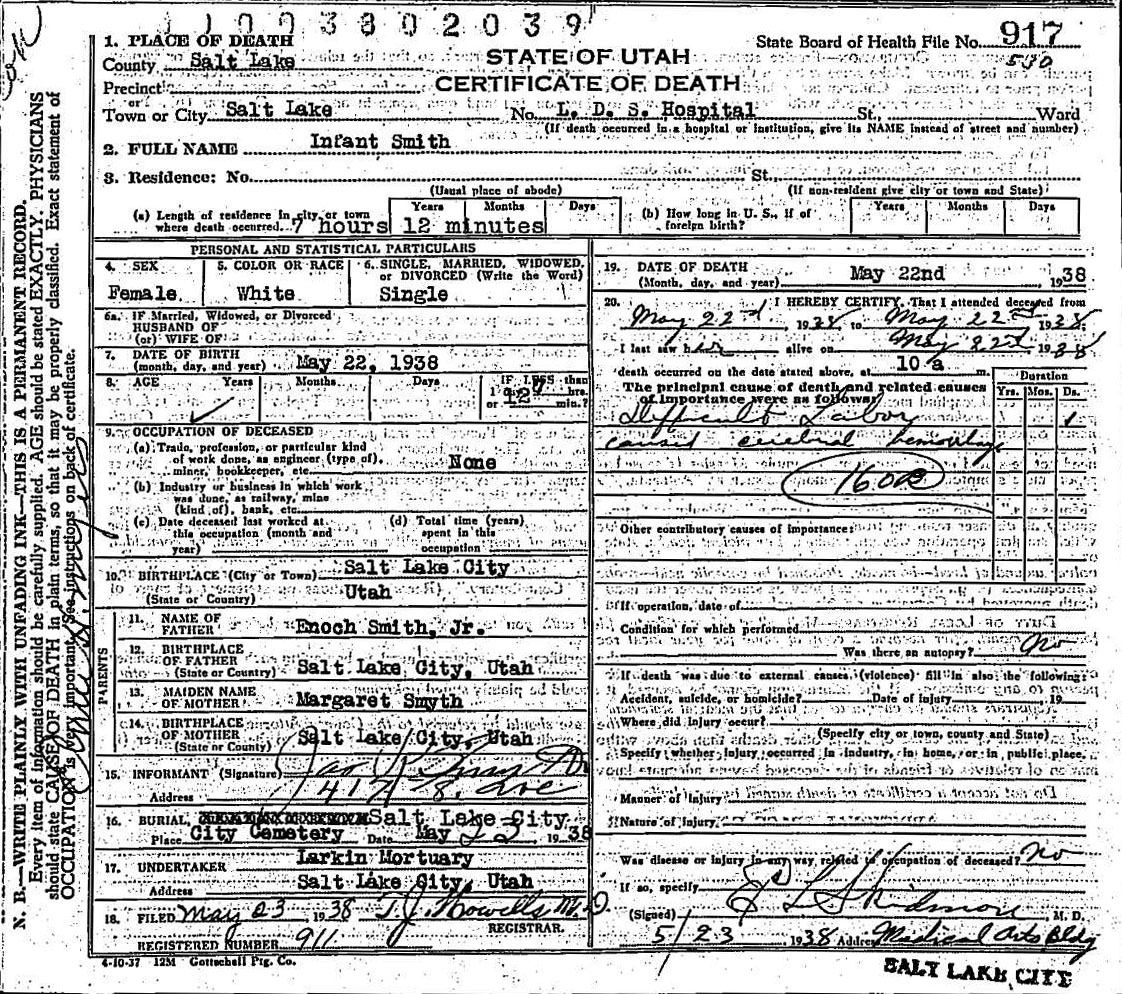 1003802039
1. PLACE OF DEATH
State Board of Health File No. 917
County Salt Lake
STATE OF UTAH
530
Precinct
CERTIFICATE OF DEATH
or
Town or City Salt Lake No. L. D. S. Hospital St., Ward
(If death occurred in a hospital or institution, give its NAME instead of street and number)
2. FULL NAME Infant Smith
3. Residence: No. St.
(Usual place of abode) (If non-resident give city or town and State)
(a) Length of residence in city or town where death occurred. 7 hours 12 minutes
Years Months Days
(b) How long in U. S., if of foreign birth?
Years Months Days
N. B.—WRITE PLAINLY WITH UNFADING INK—THIS IS A PERMANENT RECORD.
Every item of information should be carefully supplied. AGE should be stated EXACTLY. PHYSICIANS
should state CAUSE OF DEATH in plain terms, so that it may be properly classified. Exact statement of
OCCUPATION is very important. See instructions on back of certificate.
PERSONAL AND STATISTICAL PARTICULARS
4. SEX 5. COLOR OR RACE 6. SINGLE, MARRIED, WIDOWED,
or DIVORCED (Write the Word)
Female White Single
6a. IF Married, Widowed, or Divorced
HUSBAND OF
(or) WIFE OF
7. DATE OF BIRTH
(month, day, and year) May 22, 1938
8. AGE Years Months Days IF LESS than
1 hrs.
or min.?
9. OCCUPATION OF DECEASED
(a) Trade, profession, or particular kind
of work done, as engineer (type of),
miner, bookkeeper, etc. None
(b) Industry or business in which work
was done, as railway, mine
(kind of), bank, etc.
(c) Date deceased last worked at
this occupation (month and
year)
(d) Total time (years)
spent in this
occupation
10. BIRTHPLACE (City or Town) Salt Lake City
(State or Country) Utah
PARENTS
11. NAME OF
FATHER Enoch Smith, Jr.
12. BIRTHPLACE
OF FATHER
(State or Country) Salt Lake City, Utah
13. MAIDEN NAME
OF MOTHER Margaret Smyth
14. BIRTHPLACE
OF MOTHER
(State or Country) Salt Lake City, Utah
15. INFORMANT (Signature)
Address
16. BURIAL, Salt Lake City
Place City Cemetery Date May 23 1938
17. UNDERTAKER Larkin Mortuary
Address Salt Lake City, Utah
18. FILED May 23, 1938 T. J. Howells M.D.
REGISTRAR.
REGISTERED NUMBER 911
4-10-37 12M Gottschall Ptg. Co.
19. DATE OF DEATH
(Month, day, and year) May 22nd 1938
20. I HEREBY CERTIFY, That I attended deceased from
May 22nd, 1938 to May 22nd 1938
I last saw her alive on May 22nd 1938
death occurred on the date stated above, at 10 a m.
The principal cause of death and related causes
of importance were as follows:
Duration
Yrs. Mos. Ds.
Difficult Labor 1
caused cerebral hemorrhage
160B
Other contributory causes of importance:
If operation, date of
Condition for which performed
Was there an autopsy? No
If death was due to external causes (violence) fill in also the following:
Accident, suicide, or homicide? Date of injury 19
Where did injury occur?
(Specify city or town, county and State)
Specify whether injury occurred in industry, in home, or in public place.
Manner of Injury
Nature of injury
Was disease or injury in any way related to occupation of deceased? No
If so, specify
(Signed) L Skidmore M. D.
5/23 1938 Address Medical Arts Bldg
SALT LAKE CITY